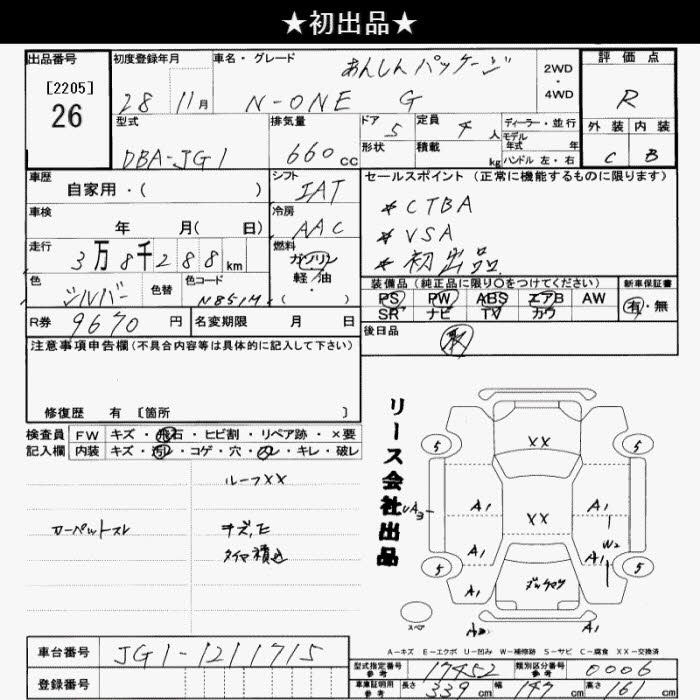 ★初出品★
出品番号 初度登録年月 車名・グレード あんしんパッケージ 2WD・4WD 評価点
[2205] 26 28 11月 N-ONE G R
型式 排気量 ドア 定員 ディーラー・並行 外装 内装
DBA-JG1 660cc 5 4人 モデル年式 年
形状 積載 kg ハンドル 左・右 C B
車歴 自家用・( ) シフト IAT セールスポイント(正常に機能するものに限ります)
車検 年 月( 日) 冷房 AAC *CTBA
*VSA
走行 3万8千288km 燃料 ガソリン 軽油 ( ) *初出品
色 シルバー 色替 色コード N851M
装備品(純正品に限り○をつけてください) 新車保証書
PS PW ABS エアB AW 有・無
SR ナビ TV カワ
R券 9670円 名変期限 月 日 後日品
注意事項申告欄(不具合内容等は具体的に記入して下さい)
修復歴 有 [箇所 ]
検査員記入欄 FW キズ・飛石・ヒビ割・リペア跡・×要
内装 キズ・汚レ・コゲ・穴・・キレ・破レ
ルーフXX
カーペットスレ キズ,ヒ
タイヤ積込
リース会社出品
XX
5 5
A1 XX A1
A1 A1 W2
5 5
A1 A1
スペア
A-キズ E-エクボ U-凹み W-補修跡 S-サビ C-腐食 XX-交換済
車台番号 JG1-1211715
登録番号
型式指定番号 参考 17452 類別区分番号 参考 0006
車庫証明用 参考 長さ 339cm 幅 147cm 高さ 161cm